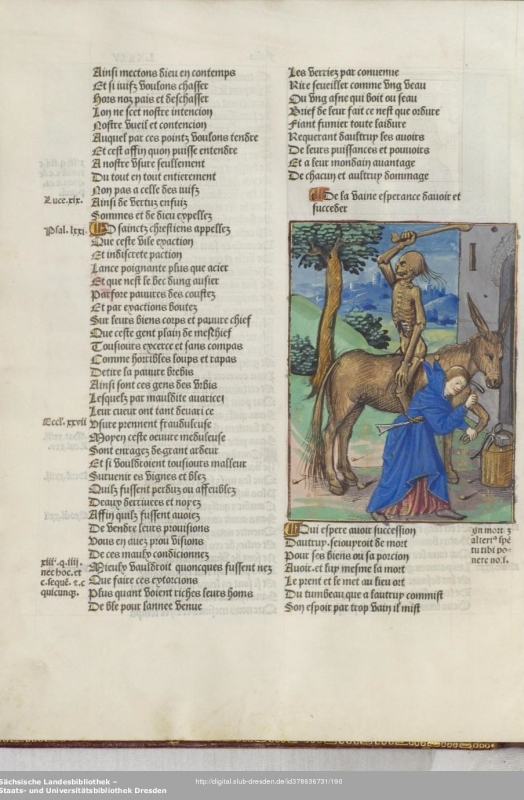 Ainsi mectons dieu en contemps
Et si iuifz voulons chasser
Hors noz pais et deschasser
Lon ne scet nostre intencion
Nostre vueil et contencion
Auquel par ces pointz voulons tendre
Et cest affin quon puisse entendre
A nostre vsure seullement
Du tout en tout entierement
Non pas a celle des iuifz
Luce.xix.
Ainsi de vertuz enfuiz
Sommes et de dieu expellez
Psal.lxxi.
O sainctz chrestiens appellez
Que ceste vile exaction
Et indiscrete paction
Lance poignante plus que acier
Et que nest le bec dung ausier
Par fore pauures des coustez
Et par exactions boutez
Sur leurs biens corps et pauure chief
Que ceste gent plain de meschief
Tousiours exerce et sans compas
Comme horribles loups et rapas
Detire la pauure brebis
Ainsi font ces gens des vrbis
Lesquelz par mauldite auarice
Leur cueur ont tant deuari ce
Eccl.xxvii
Vsure prennent frauduleuse
Moyen ceste oeuure meduleuse
Sont enragez de grant ardeur
Et si vouldroient tousiours malleur
Suruenir es vignes et blez
Quilz fussent perduz ou affeublez
Deaux bettiuees et noyez
Affin quilz fussent auoiez
De vendre leurs prouisions
Vous en auez prou visions
De ces maulx condicionnez
xiiii.q.iiii.
nec hoc.et
c.sequē. r.c
quicunqz.
Mieulx vauldroit quoncques fussent nez
Que faire ces extorcions
Plus quant voient riches leurs homs
De ble pour lannee venue
Les verriez par conuenue
Rire seueiller comme vng veau
Ou vng asne qui boit ou seau
Brief de leur fait ce nest que ordure
Fiant fumier toute laidure
Requerant daultruy les auoirs
De leurs puissances et pouuoirs
Et a leur mondain auantage
De chacun et aultruy dommage
De la vaine esperance dauoir et
succeder
Qui espere auoir succession
Dautruy seiouyroit de mort
Pour ses biens ou sa porcion
Auoir. et luy mesme la mort
Le prent et le met au lieu ort
Du tumbeau que a lautruy commist
Son espoir par trop vain il mist
gn mort. z
alteri⁹ spē
tu tibi po-
nere no.i.
Sächsische Landesbibliothek –
Staats- und Universitätsbibliothek Dresden
http://digital.slub-dresden.de/id378636731/190